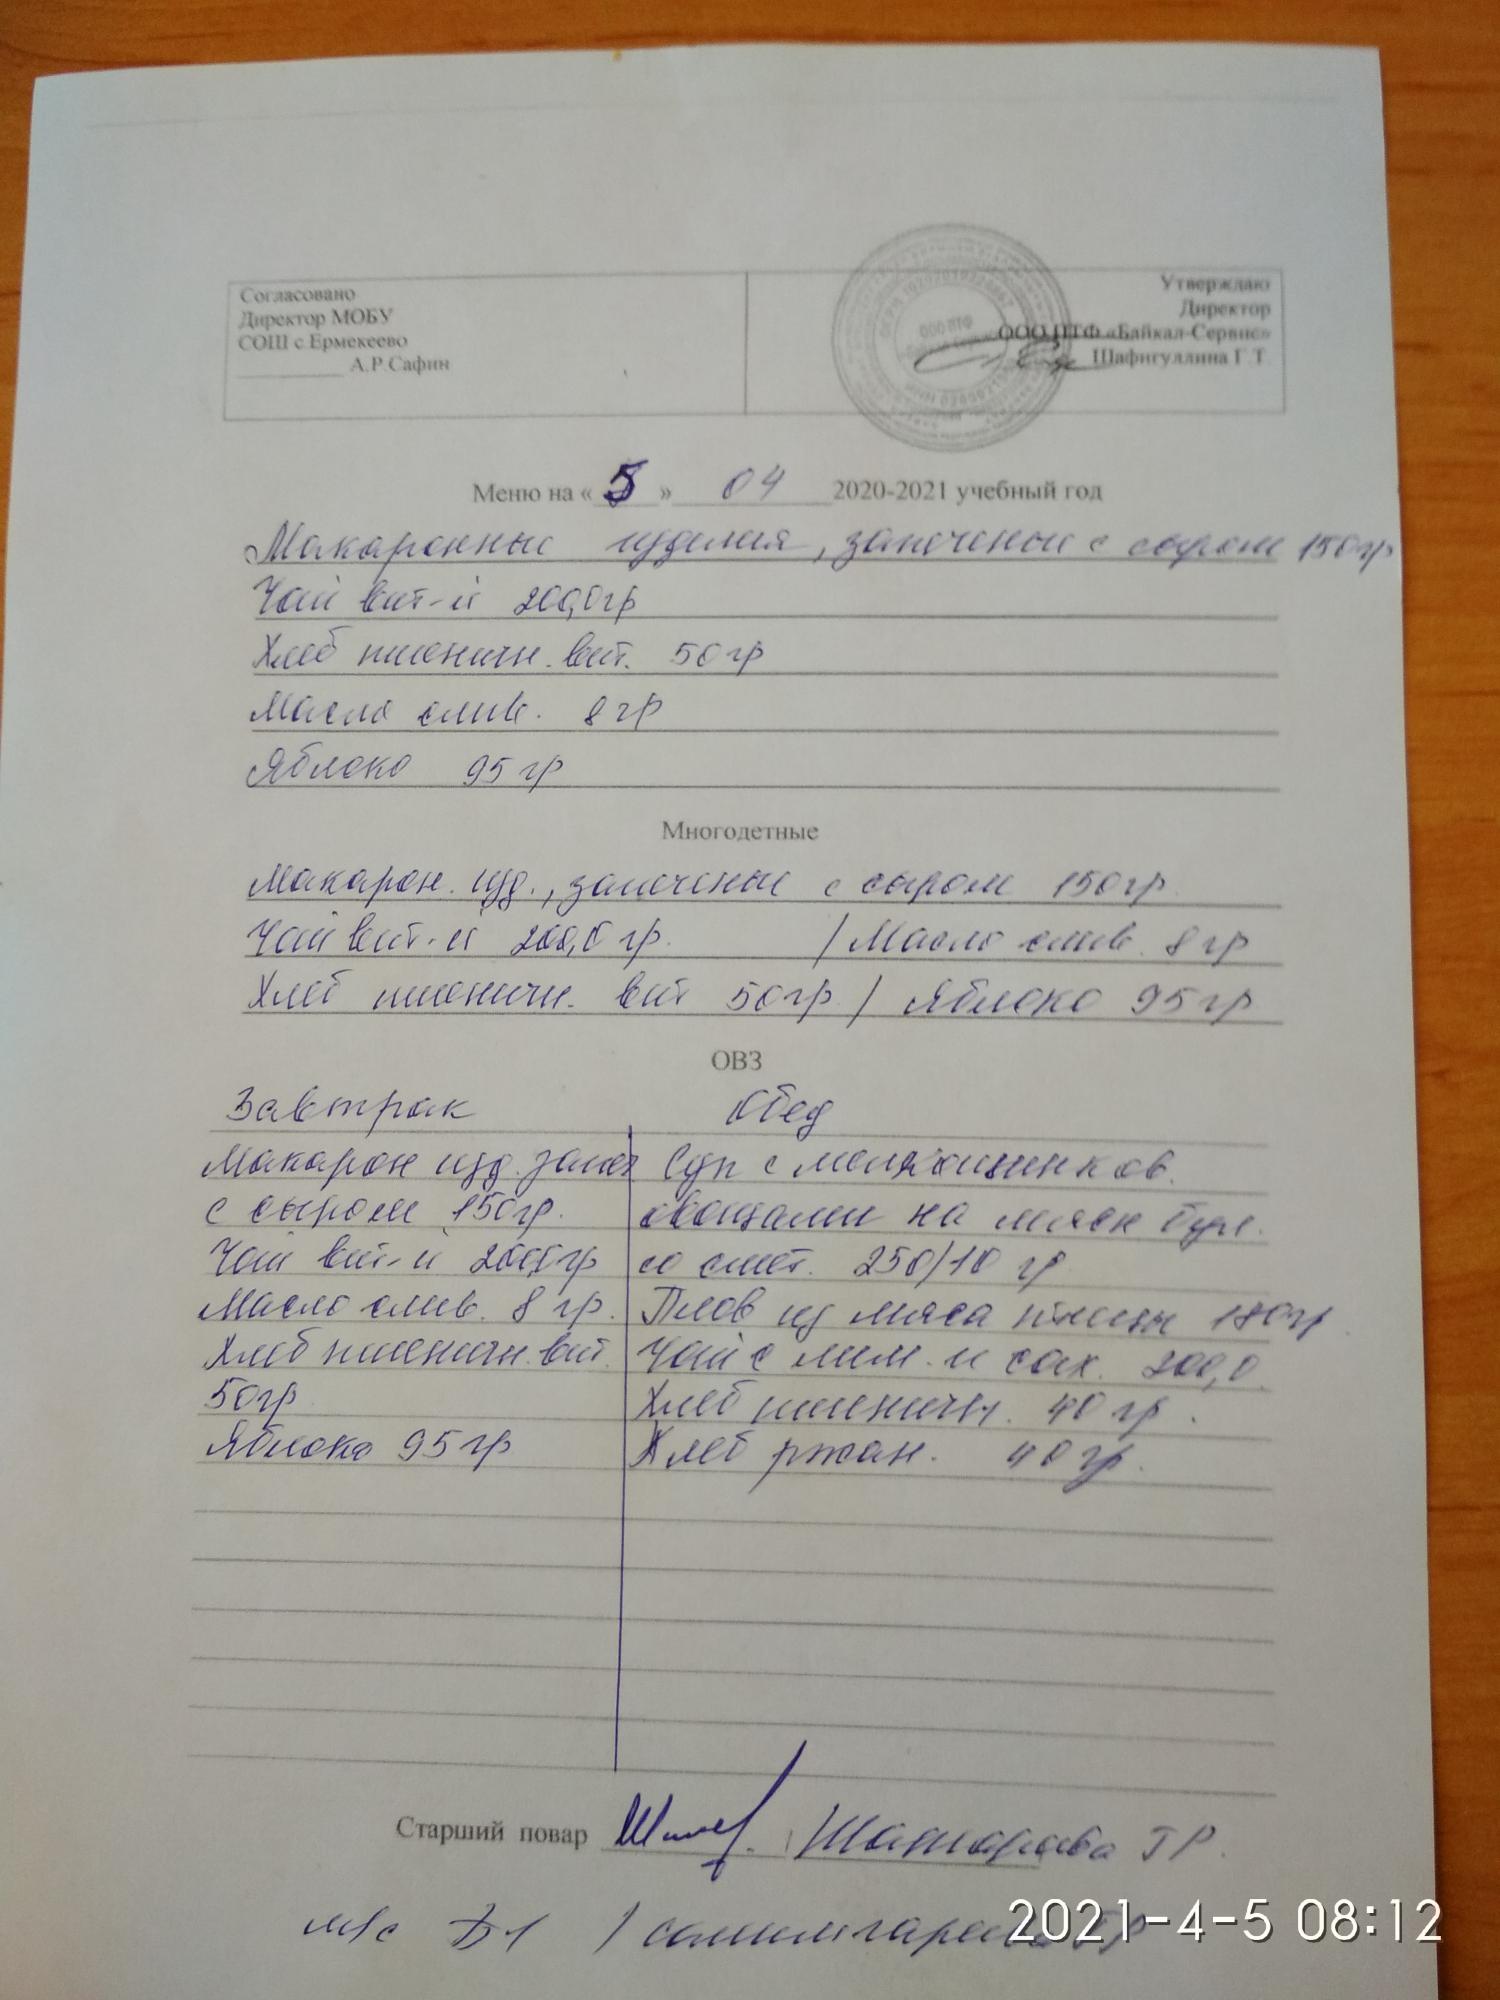 Согласовано
Директор МОБУ
СОШ с Ермекеево
__________ А.Р.Сафин
Утверждаю
Директор
ООО ПТФ «Байкал-Сервис»
Шафигуллина Г.Т.
ООО ПТФ
Меню на « 5 » 04 2020-2021 учебный год
Макаронные изделия, запеченые с сыром 150гр
Чай вит-й 200,0гр
Хлеб пшеничн. вит. 50гр
Масло слив. 8гр
Яблоко 95гр
Многодетные
Макарон. изд., запеченые с сыром 150гр
Чай вит-й 200,0 гр. / Масло слив. 8гр
Хлеб пшеничн. вит 50гр / Яблоко 95гр
ОВЗ
Завтрак
Макарон изд. запеч
с сыром 150гр.
Чай вит-й 200,0гр
Масло слив. 8 гр.
Хлеб пшеничн. вит.
50гр
Яблоко 95гр
Обед
Суп с мелкошинков.
овощами на мясн бул.
со смет. 250/10 гр
Плов из мяса птицы 180гр
Чай с лим. и сах. 200,0.
Хлеб пшеничн. 40 гр.
Хлеб ржан. 40 гр.
Старший повар
Г Р.
м/с
2021-4-5 08:12